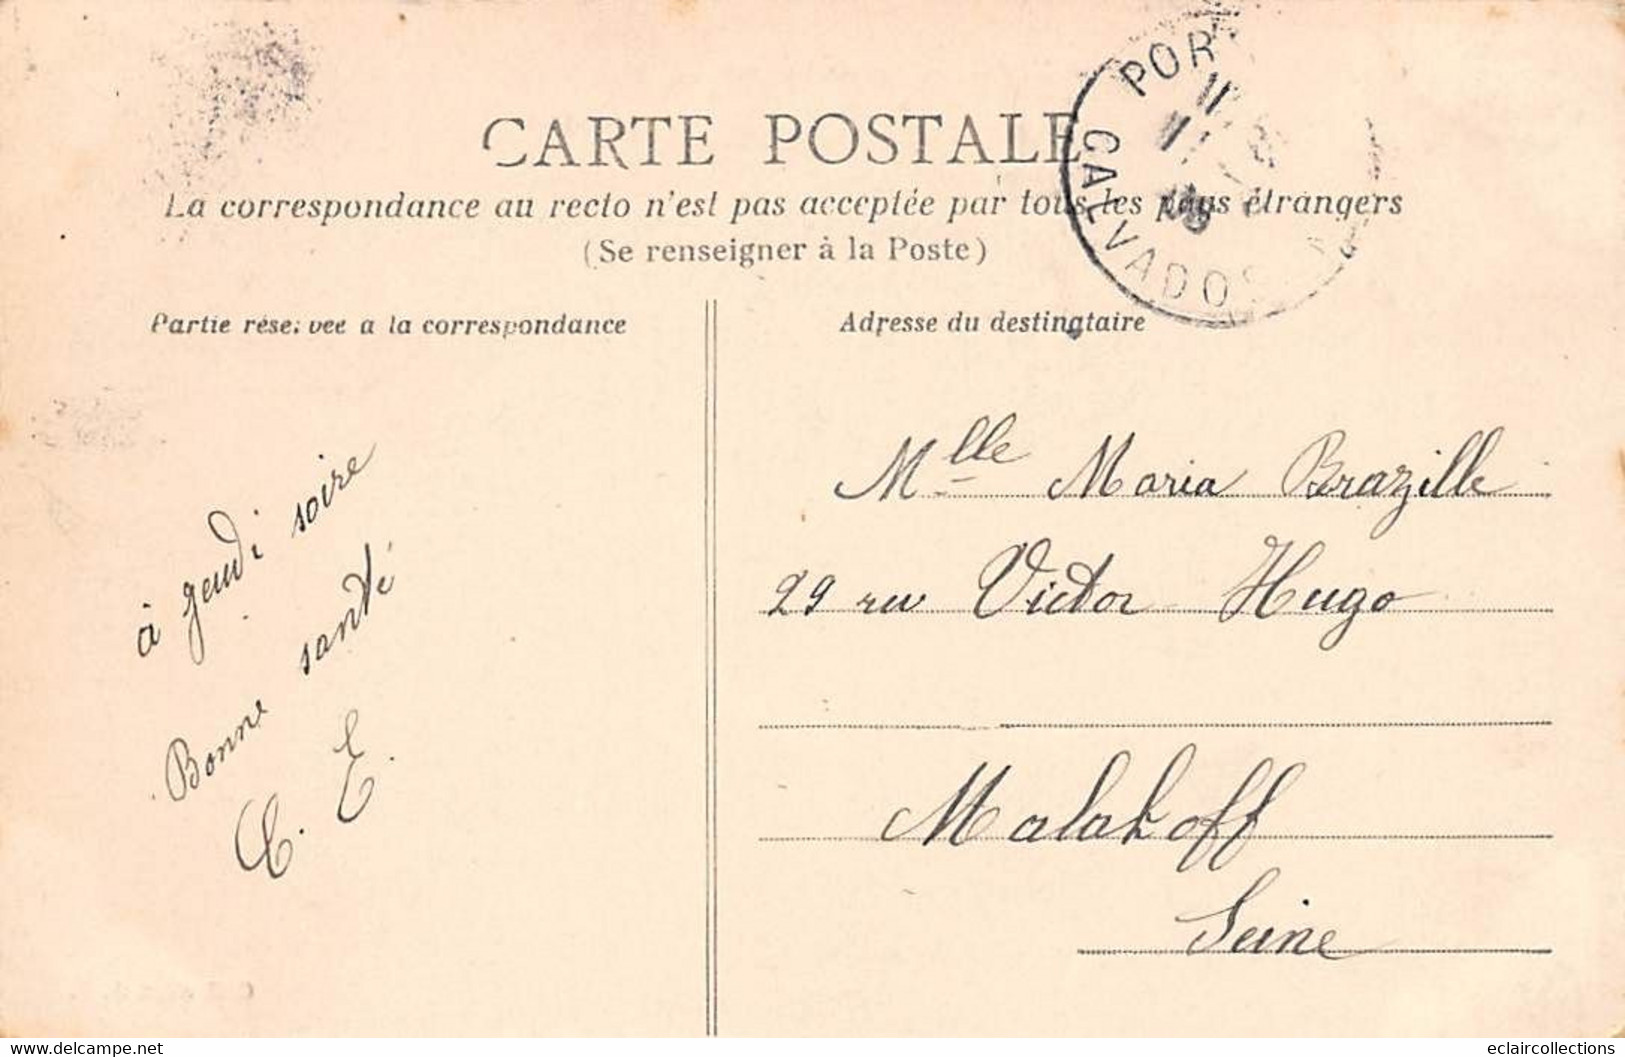 CARTE POSTALE
La correspondance au recto n'est pas acceptée par tous les pays étrangers
(Se renseigner à la Poste)
POR
CALVADOS
Partie réservée a la correspondance
Adresse du destinataire
à geudi soire
Bonne santé
E.
Mlle Maria Brazille
29 rue Victor Hugo
Malakoff
Seine
www.delcampe.net
eclaircollections